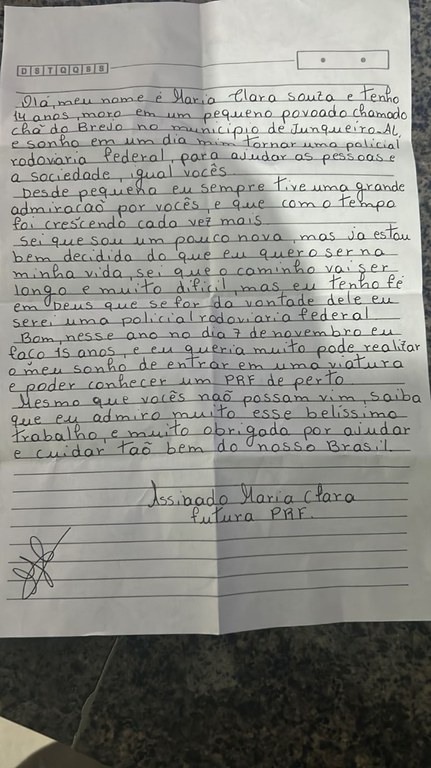 D S T Q Q S S
Olá, meu nome é Maria Clara souza e tenho
14 anos, moro em um pequeno povoado chamado
chã do Brejo no município de Junqueiro-AL,
e sonho em um dia mim tornar uma policial
rodovaria federal, para ajudar as pessoas e
a sociedade, igual vocês.
Desde pequena eu sempre tive uma grande
admiracaõ por vocês, e que com o tempo
foi crescendo cada vez mais.
Sei que sou um pouco nova, mas ja estou
bem decidida do que eu quero ser na
minha vida, sei que o caminho vai ser
longo e muito dificil, mas, eu tenho fé
em Deus que se for da vontade dele eu
serei uma policial rodoviaria federal
Bom, nesse ano no dia 7 de novembro eu
faço 15 anos, e eu queria muito pode realizar
o meu sonho de entrar em uma viatura
e poder conhecer um PRF de perto.
Mesmo que vocês naõ possam vim, saiba
que eu admiro muito esse belíssimo
trabalho, e muito obrigada por ajudar
e cuidar taõ bem do nosso Brasil.
Assinado Maria Clara
futura PRF.